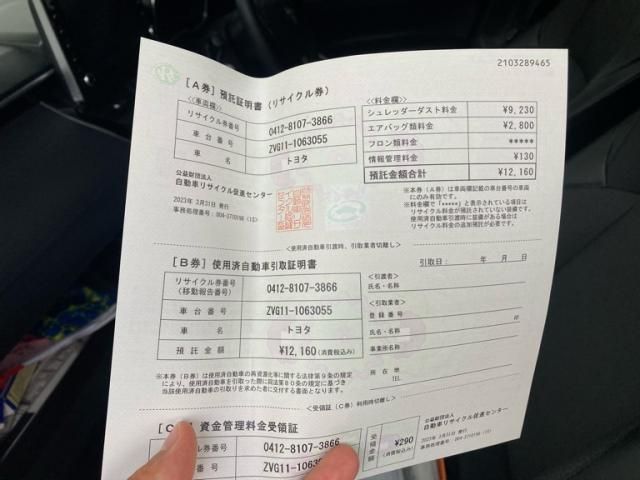 2103289465
[A券] 預託証明書 (リサイクル券)
<<車両欄>>
リサイクル券番号 0412-8107-3866
車台番号 ZVG11-1063055
車名 トヨタ
公益財団法人
自動車リサイクル促進センター
2023年 3月31日 発行
<<料金欄>>
シュレッダーダスト料金 ¥9,230
エアバッグ類料金 ¥2,800
フロン類料金 *****
情報管理料金 ¥130
預託金額合計 ¥12,160
※本券 (A券) は車両欄記載の車台番号の車両
にのみ有効です。
※料金欄で「*****」と表示されている項目は
リサイクル料金が預託されていない装備です。
使用済自動車引渡時に装備がある場合は
リサイクル料金の追加預託が必要です。
<使用済自動車引渡時、引取業者切離し>
[B券] 使用済自動車引取証明書
引取日: 年 月 日
リサイクル券番号
(移動報告番号) 0412-8107-3866
車台番号 ZVG11-1063055
車名 トヨタ
預託金額 ¥12,160 (消費税込み)
<引渡者>
氏名・名称
<引取業者>
登録番号
氏名・名称
印
事業所名称
所在地
TEL.
※本券 (B券) は使用済自動車の再資源化等に関する法律第9条の規定
により、使用済自動車を引取った際に同法第80条の規定に基づき
当該使用済自動車の引取りを求めた者に交付する書面となります。
<受領証 (C券) 利用時切離し>
資金管理料金受領証
券番号 0412-8107-3866
番号 ZVG11-10630
受領金額 ¥290
(消費税込み)
公益財団法人
自動車リサイクル促進センター
2023年 3月31日 発行